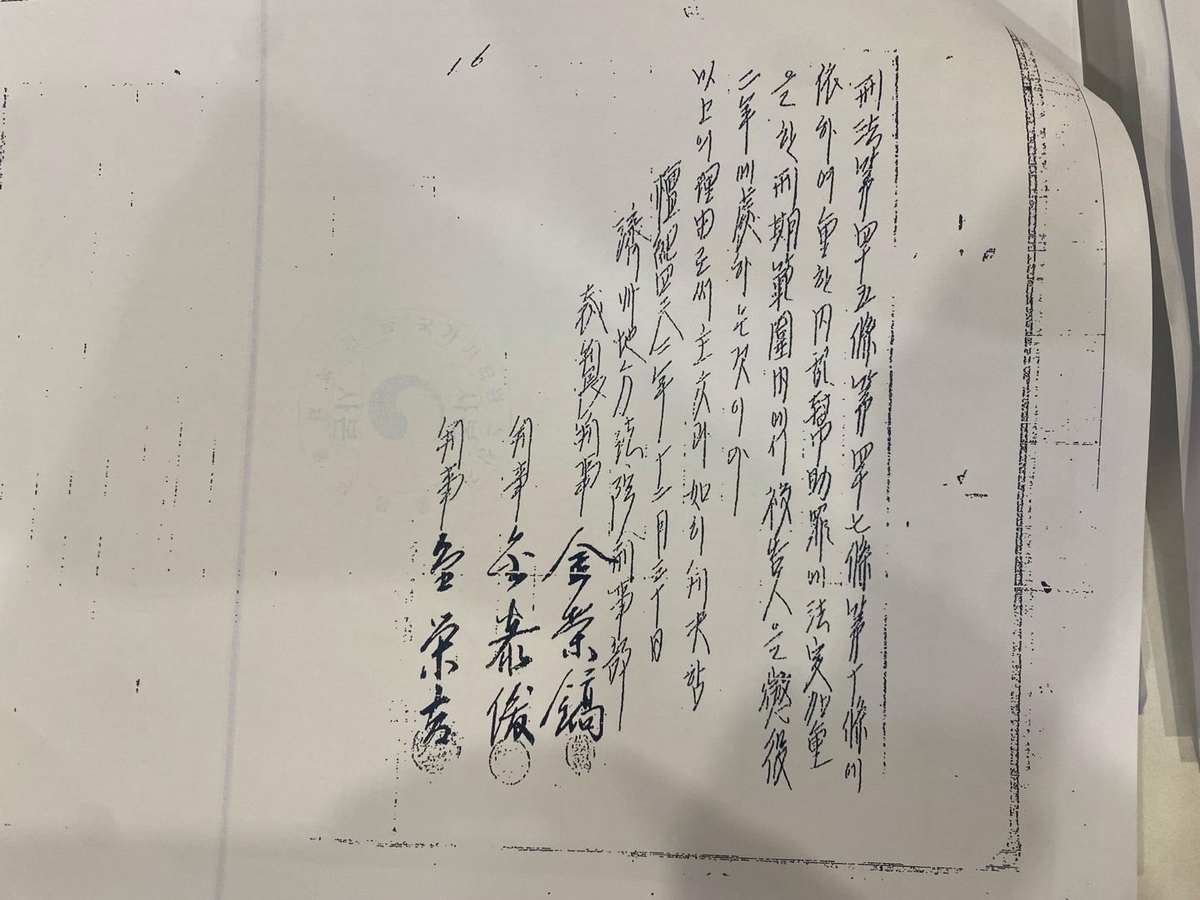 刑法第四十五條第四十七條第十條에
依하여重한內亂幇助罪에法定加重
을한刑期範圍內에서被告人을懲役
二年에處하는것이다
以上의理由로써主文과如히判決함
檀紀四二八二年十二月三十日
濟州地方法院刑事部
裁判長判事 金榮鎬
判事
判事
16